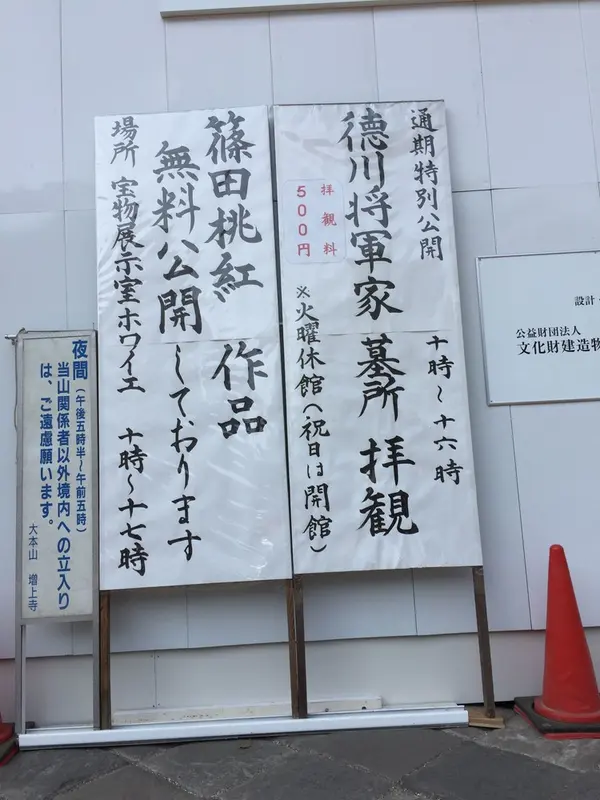 通期特別公開
十時〜十六時
徳川将軍家 墓所 拝観
拝観料
500円
※火曜休館(祝日は開館)
篠田桃紅 作品
無料公開しております
場所 宝物展示室ホワイエ 十時〜十七時
夜間(午後五時半〜午前五時)
当山関係者以外境内への立入り
は、ご遠慮願います。
大本山 増上寺
設計・
公益財団法人
文化財建造物